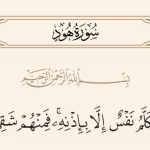 سُورَةُ هُودٍ
بِسْمِ ٱللَّهِ ٱلرَّحْمَٰنِ ٱلرَّحِيمِ
نَفْسٌ إِلَّا بِإِذْنِهِۦۚ فَمِنْهُمْ